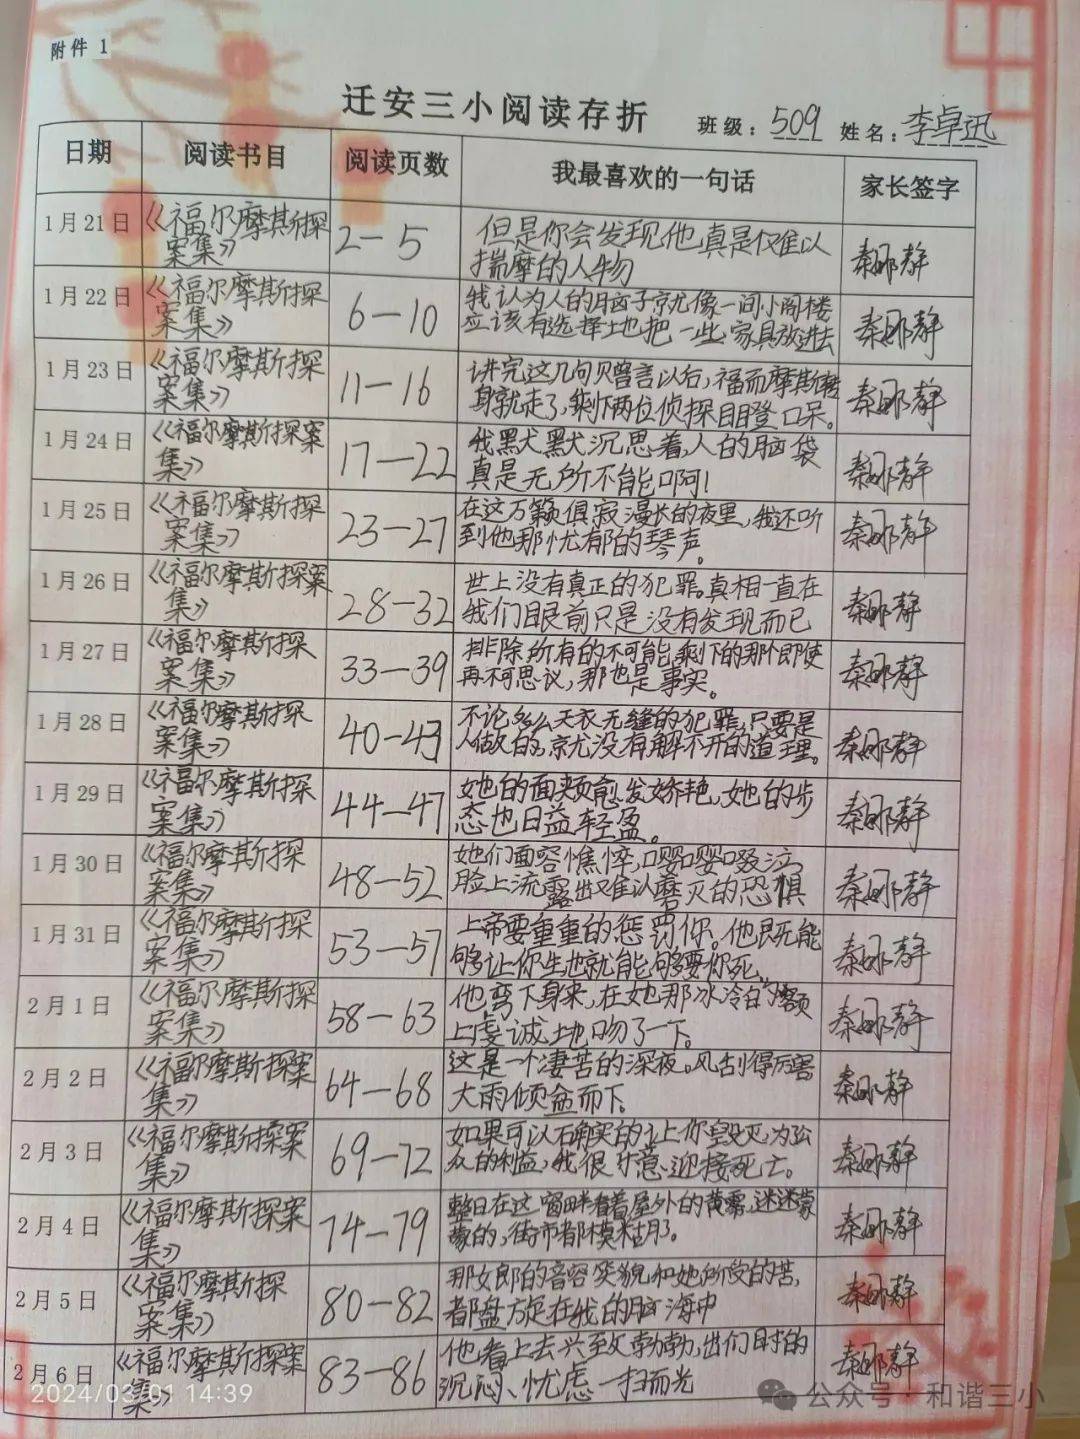 附件 1
迁安三小阅读存折 班级：509 姓名：李卓迅
日期 阅读书目 阅读页数 我最喜欢的一句话 家长签字
1月21日 《福尔摩斯探 2—5 但是你会发现他真是难以
案集》 揣摩的人物 秦娜静
1月22日 《福尔摩斯探 6—10 我认为人的脑子京尤像一间小阁楼
案集》 应该有选择土也把一些家具放进去 秦娜静
1月23日 《福尔摩斯探 11—16 讲完这几句贝曾言以后，福而摩斯转
案集》 身就走了，剩下两位侦探目瞪口呆。 秦娜静
1月24日 《福尔摩斯探案 17—22 我默默沉思着，人的脑袋
集》 真是无所不能啊！ 秦娜静
1月25日 《福尔摩斯探 23—27 在这万籁俱寂漫长的夜里，我还听
案集》 到他那忧郁的琴声。 秦娜静
1月26日 《福尔摩斯探案 28—32 世上没有真正的犯罪。真相一直在
集》 我们眼前只是没有发现而已 秦娜静
1月27日 《福尔摩斯探 33—39 排除所有的不可能，剩下的那个即使
案集》 再不可思议，那也是事实。 秦娜静
1月28日 《福尔摩斯探 40—43 不论多么天衣无缝的犯罪，只要是
案集》 人做的，就没有解不开的道理。 秦娜静
1月29日 《福尔摩斯探 44—47 她的面颊愈发娇艳，她的步
案集》 态也日益轻盈。 秦娜静
1月30日 《福尔摩斯探 48—52 她们面容憔悴，嘤嘤啜泣
案集》 脸上流露出难以磨灭的恐惧 秦娜静
1月31日 《福尔摩斯探 53—57 上帝要重重的惩罚你。他既然能
案集》 够让你生也就能够要你死。 秦娜静
2月1日 《福尔摩斯探 58—63 他弯下身来，在她那冰冷的额
案集》 上虔诚地吻了一下。 秦娜静
2月2日 《福尔摩斯探案 64—68 这是一个凄苦的深夜。风刮得厉害
集》 大雨倾盆而下。 秦娜静
2月3日 《福尔摩斯探案 69—72 如果可以确实的让你毁灭，为公
集》 众的利益，我很乐意迎接死亡。 秦娜静
2月4日 《福尔摩斯探案 74—79 整日在这窗畔看着屋外的黄雾，迷迷蒙
集》 蒙的，街市都模糊了。 秦娜静
2月5日 《福尔摩斯探 80—82 那女郎的音容笑貌和她所受的苦，
案集》 都盘旋在我的脑海中 秦娜静
2月6日 《福尔摩斯探案 83—86 他看上去兴致勃勃，出们时的
集》 沉闷、忧虑一扫而光 秦娜静
2024/03/01 14:39
公众号·和谐三小